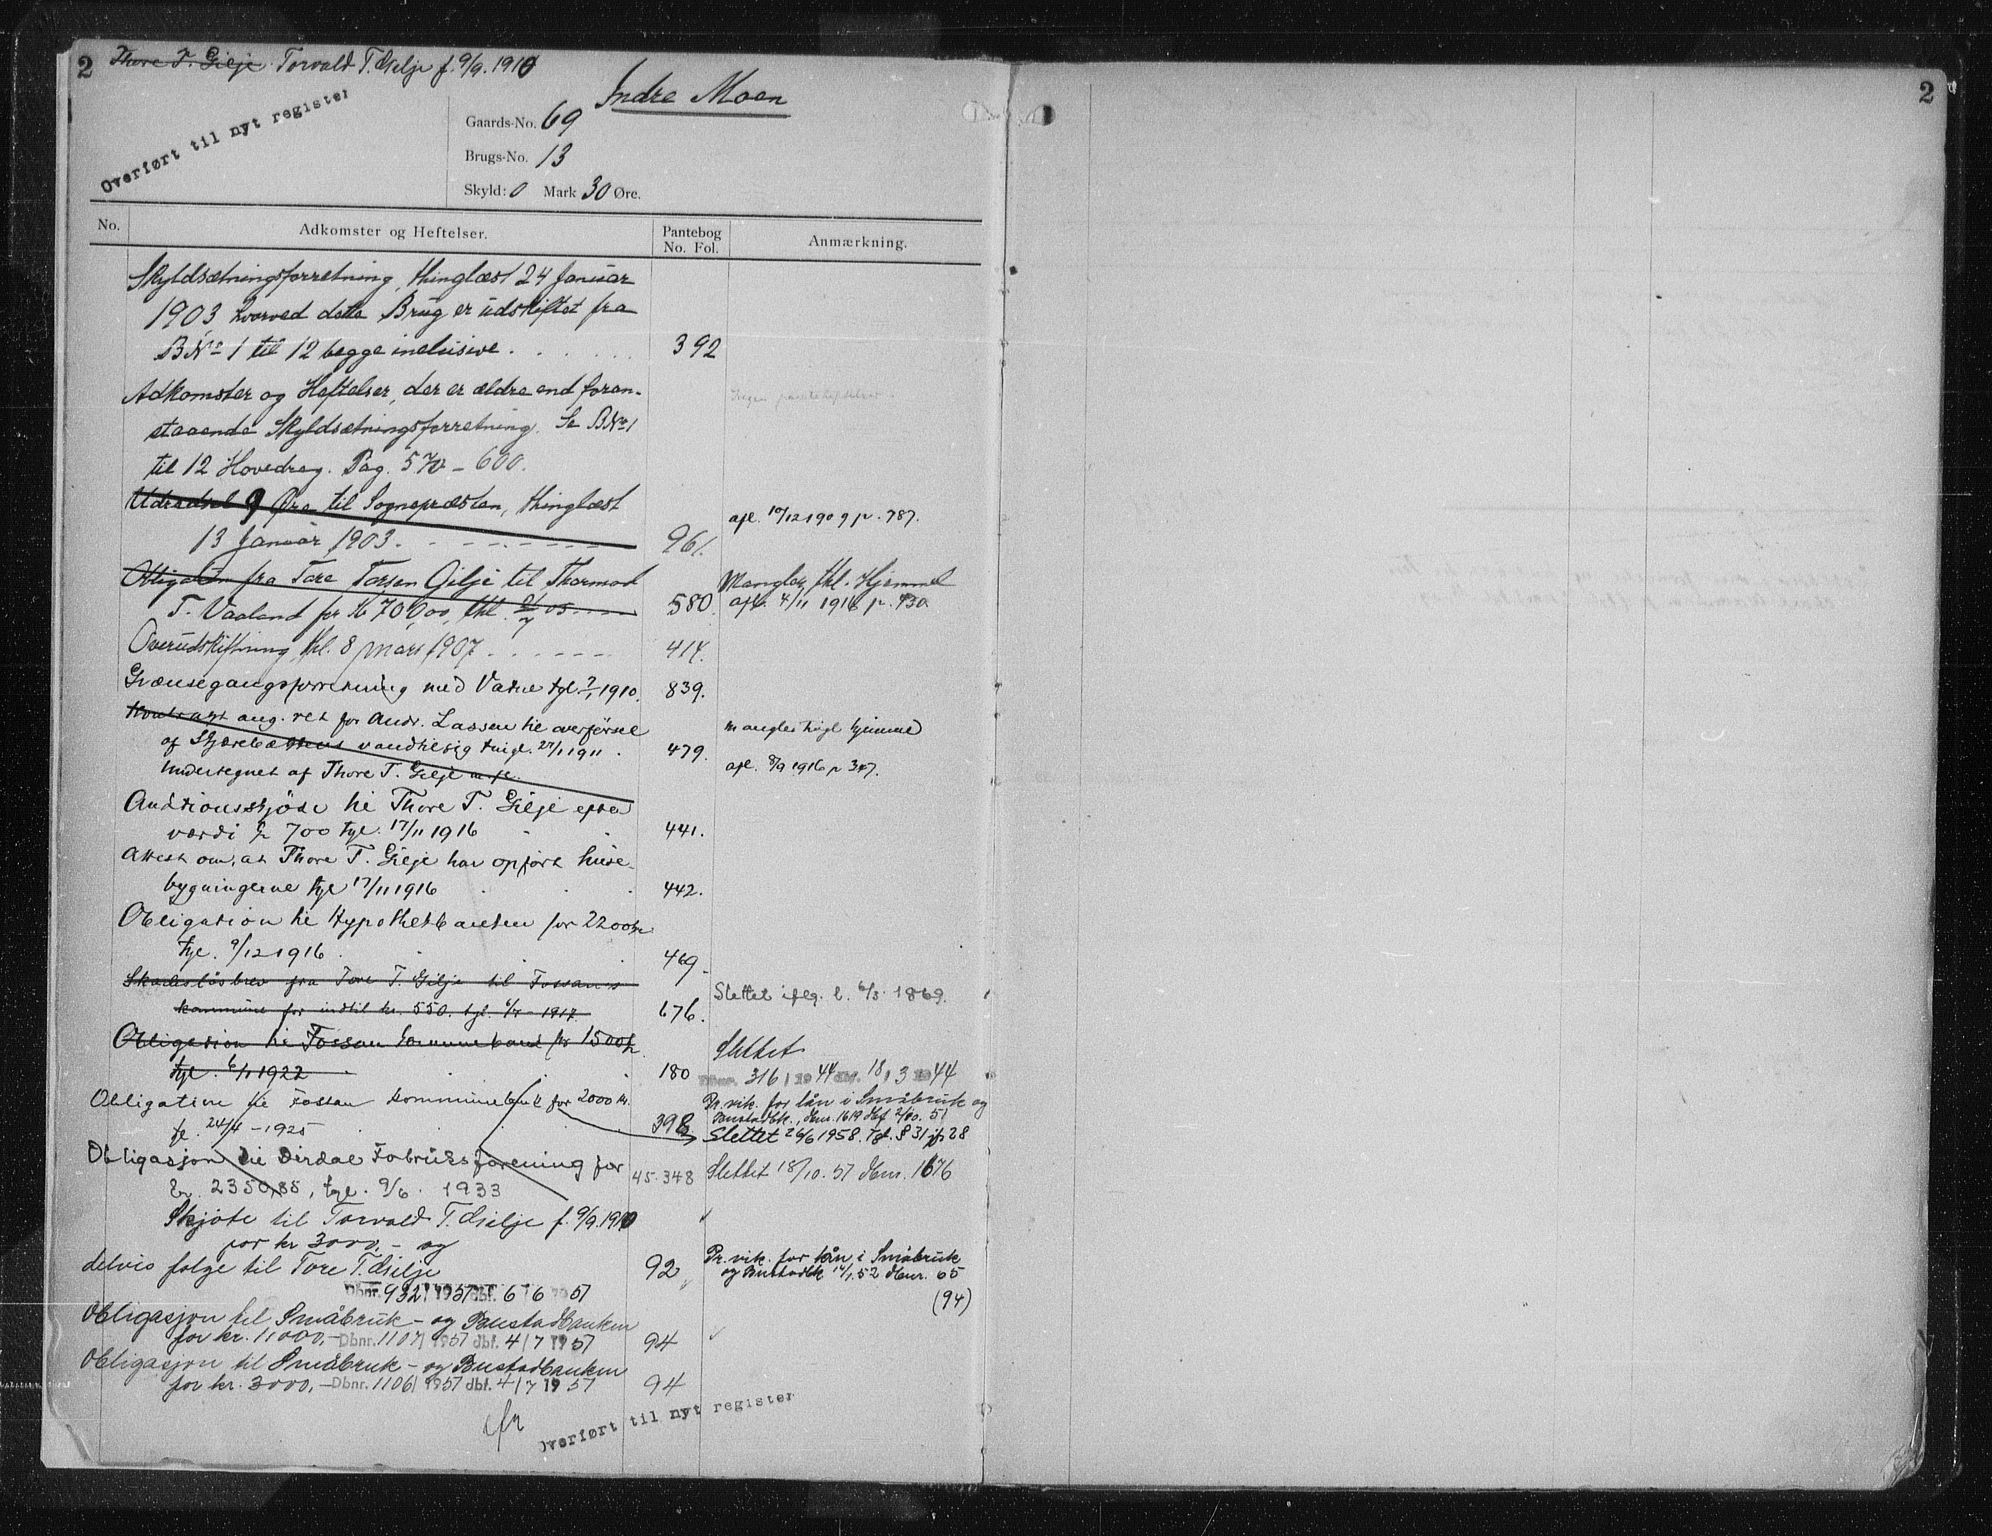 2 Thore T. Gilje Torvald T. Gilje f. 9/9.1910
Indre Moen
Overført til nyt register
Gaards-No. 69
Brugs-No. 13
Skyld: 0 Mark 30 Øre.
No. Adkomster og Heftelser. Pantebog No. Fol. Anmærkning.
Skyldsætningsforretning, thinglæst 24 Januar
1903 hvorved dette Brug er udskiftet fra
BNo 1 til 12 begge inclusive. 392
Adkomster og Heftelser, der er ældre end foran-
staaende Skyldsætningsforretning. Se BNo 1
til 12 Hovedreg. Pag. 570 - 600.
Udredsel 9 Øre til Sognepræsten, thinglæst
13 Januar 1903. 961. afl. 10/12 1909 p. 787.
Obligation fra Tore Torsen Gilje til Thormod Mangler thl. Hjemmel
T. Vaaland for Kr 70,00, thl. 21/7 05 580. afl. 4/11 1916 p. 430
Overudskiftning thl. 8 mars 1907 414.
Grænsegangsforretning med Vatne tgl. 7/1 1910. 839.
Kontrakt ang. ret for Andr. Lassen til overførsel mangler tingl hjemmel
af Skjærebækkens vandtilsig tingl. 27/1 1911 479.
Undertegnet af Thore T. Gilje m. fl. afl. 8/9 1916 p 347.
Auktionsskjøde til Thore T. Gilje efter
værdi kr 700 tgl. 17/11 1916 441.
Attest om, at Thore T. Gilje har opført huse-
bygningerne tgl 17/11 1916 442.
Obligation til Hypothekbanken for 2200 kr
tgl. 9/12 1916 469.
Skadesløsbrev fra Tore T. Gilje til Fossan's Slettet iflg. l. 6/3. 1869.
kommune for indtil kr. 550. tgl. 6/7 - 1917 676.
Obligation til Fossan kommunebank for 1500 kr. Slettet
tgl. 6/11 1922 180 Dbnr. 316 / 1944 dbf. 18 / 3 1944
Obligation til Fossan kommunebank for 2000 kr. Pr. vik. for lån i Småbruk og
Bustadbk., dbnr. 1619 dbf 2/10. 51
tgl. 24/4 - 1925 398 Slettet 26/6 1958. Tgl. § 31 jfr 28
Obligasjon til Dirdal Forbruksforening for
kr. 2350,85, tgl. 9/6. 1933 45-348 Slettet 18/10. 57 dbnr. 1676
Skjøte til Torvald T. Gilje f. 9/9.1910
for kr 3000.- og
delvis følge til Tore T. Gilje 92 Pr. vik. for lån i Småbruk
og Bustadbk 14/1.52 dbnr. 65
Dbnr. 932 / 1957 dbf. 6 / 6 1957 (94)
Obligasjon til Småbruk- og Bustadbanken
for kr. 11000.- Dbnr. 1107 / 1957 dbf. 4 / 7 1957 94
Obligasjon til Småbruk- og Bustadbanken
for kr. 3000.- Dbnr. 1106 / 1957 dbf. 4 / 7 1957 94
Overført til nyt register
2